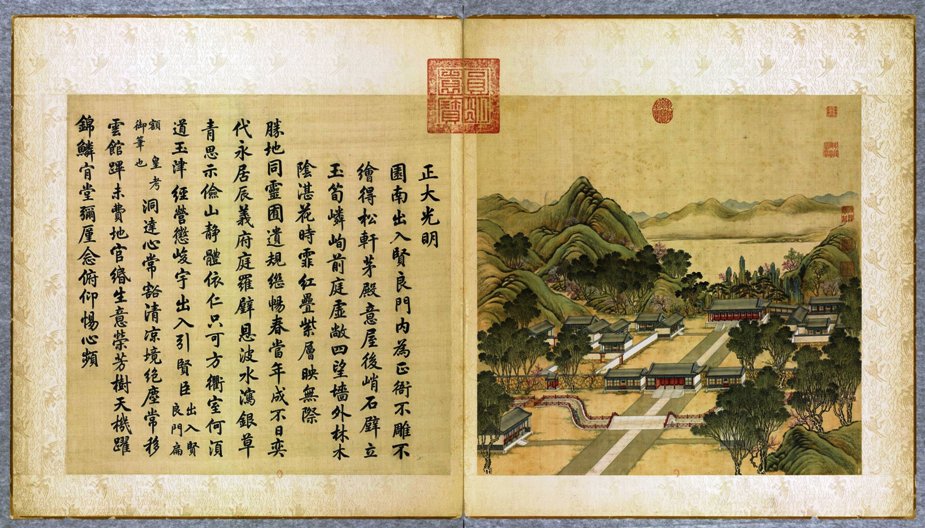 正大光明
園南出入賢良門內為正衙不雕不
繪得松軒茅殿意屋後峭石壁立
玉筍嶙峋前庭虛敞四望墻外林木
陰湛花時霏紅疊紫層映無際
勝地同靈囿遺規繼暢春當年成不日奕
代永居辰義府庭羅壁恩波水瀉銀草
青思示儉山靜體依仁只可方衢室何須
道玉津經營懲峻宇出入引賢臣出入賢良門扁
額 皇考御筆也洞達心常豁清涼境絕塵常移
雲館蹕未費地官緡生意榮芳樹天機躍
錦鱗肯堂彌厪念俯仰惕心頻